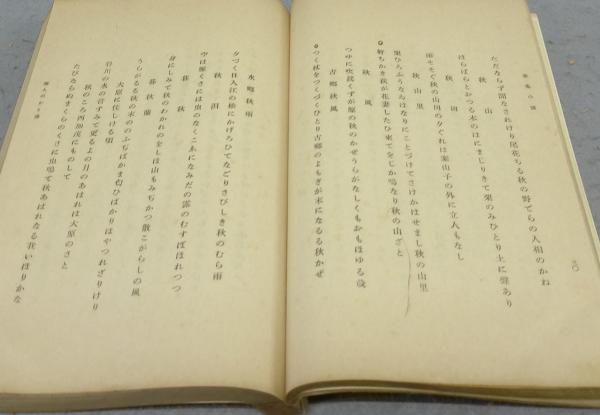 三〇
たださらず聞なされけり尾花ちる秋の野でらの入相のかね
秋山
はらはらとおつる木のはにまじりきて栗のみひとり土に聲あり
秋田
雨そそぐ秋の山田の夕ぐれは案山子の外に立人もなし
秋山里
栗ひろふうなゐはなりにことづけてさけかはせまし秋の山里
軒ちかき萩が花妻したひ來てをじか鳴なり秋の山ざと
秋風
つゆに吹淺くずが原の秋のかぜうらがなしくもおもほゆる哉
古鄕秋風
つく杖をつくづくひとり古鄕のよもぎが末になるる秋かぜ
水鄕秋雨
夕づく日入江の柚にかげろひてなごりさびしき秋のむら雨
秋田
守は稼くさには虫のなくこゑになみだの露のむすぼほれつつ
暮秋
身にしみて秋のわかれのをしほ山もみぢかつ散こがらしの風
暮秋蘭
うらがるる秋の末ののふぢばかま匂ひばかりはやつれざりけり
大原に住しける頃
谷川の水の音すみて更るよの月のあはれは大原のさと
秋のころ西加茂にものして
たびならぬまくらのくさに虫鳴て秋あはれなる我いほりかな